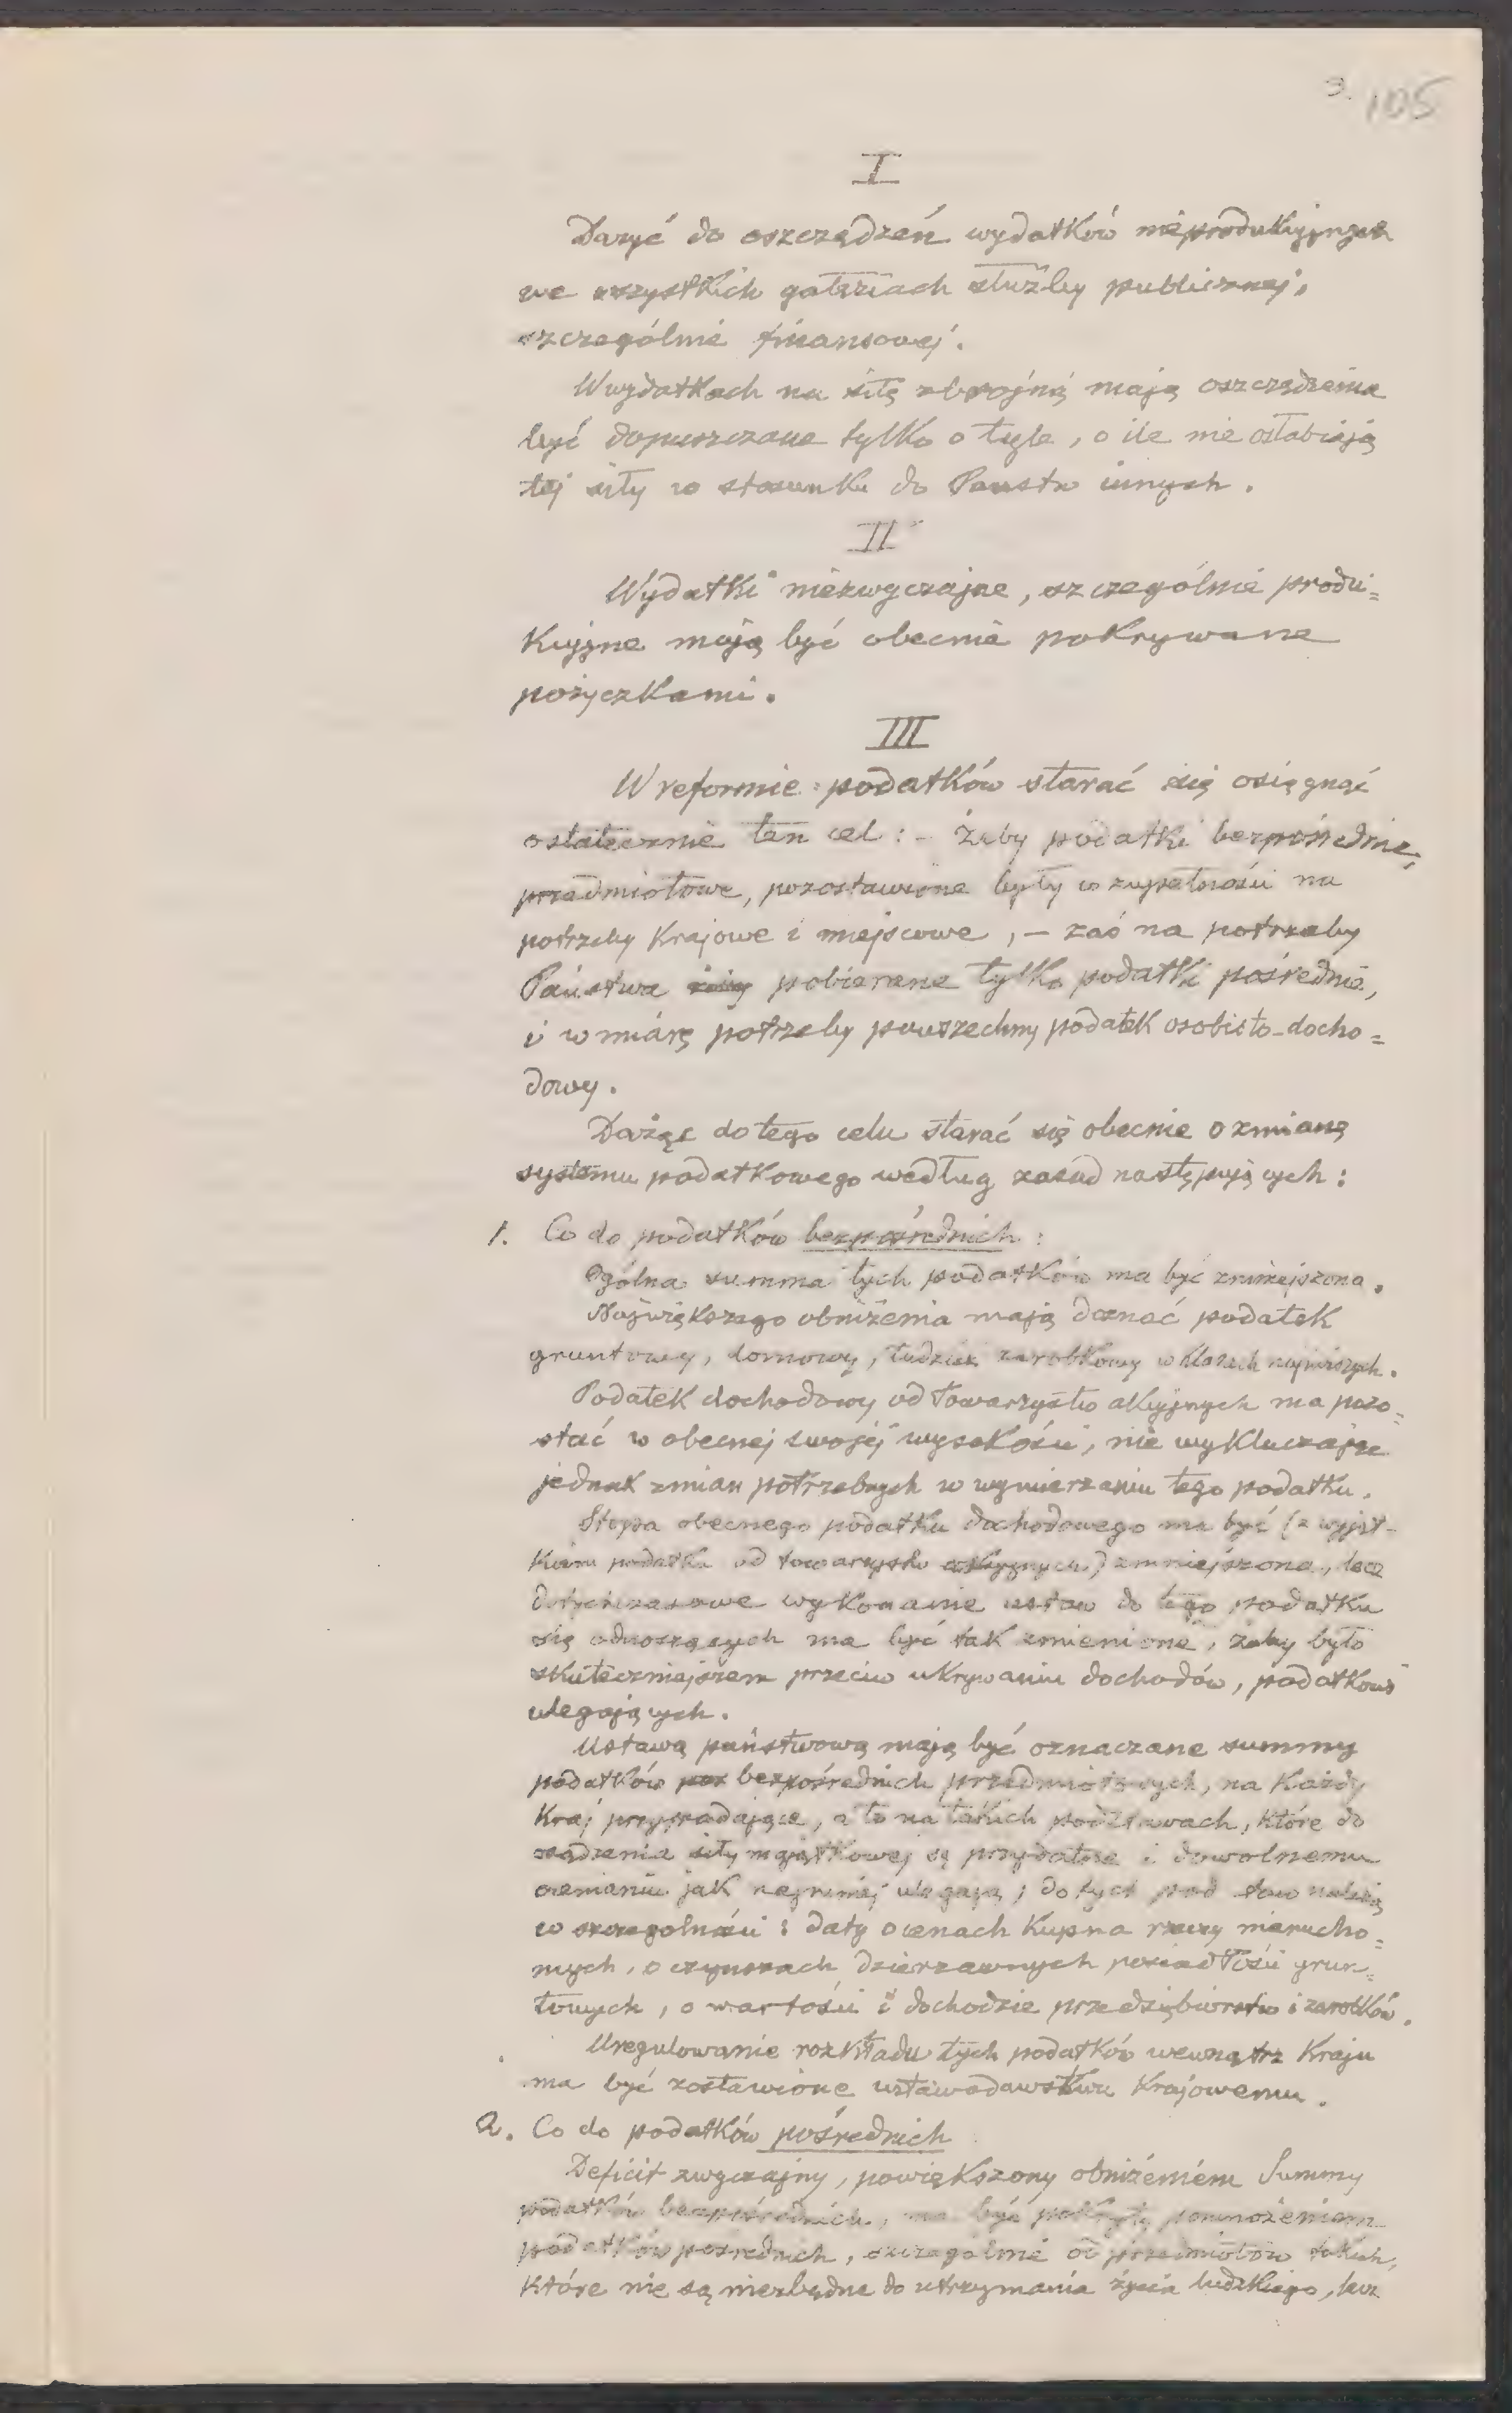 3. 105
I
Dążyć do oszczędzeń wydatków nieprodukcyjnych
we wszystkich gałęziach służby publicznej,
szczególnie finansowej.
W wydatkach na siłę zbrojną mają oszczędzenia
być dopuszczane tylko o tyle, o ile nie osłabiają
tej siły w stosunku do Państw innych.
II
Wydatki niezwyczajne, szczególnie produ=
kcyjne mają być obecnie pokrywane
pożyczkami.
III
W reformie podatków starać się osięgnąć
ostatecznie ten cel: – żeby podatki bezpośrednie,
przedmiotowe, pozostawione były w zupełności na
potrzeby krajowe i miejscowe, – zaś na potrzeby
Państwa pobierane tylko podatki pośrednie,
i w miarę potrzeby powszechny podatek osobisto-docho=
dowy.
Dążąc do tego celu starać się obecnie o zmianę
systemu podatkowego według zasad następujących:
1. Co do podatków bezpośrednich:
Ogólna summa tych podatków ma być zmniejszona.
Największego obniżenia mają doznać podatek
gruntowy, domowy, tudzież zarobkowy w klasach najniższych.
Podatek dochodowy od towarzystw akcyjnych ma pozo=
stać w obecnej swojej wysokości, nie wykluczając
jednak zmian potrzebnych w wymierzaniu tego podatku.
Stopa obecnego podatku dochodowego ma być (z wyjąt-
kiem podatku od towarzystw akcyjnych) zmniejszona, lecz
dotychczasowe wykonanie ustaw do tego podatku
się odnoszących ma być tak zmienione, żeby było
skuteczniejszem przeciw ukrywaniu dochodów, podatkowi
ulegających.
Ustawą państwową mają być oznaczane summy
podatków bezpośrednich przedmiotowych, na każdy
kraj przypadające, a to na takich podstawach, które do
osądzenia siły majątkowej są przydatne i dowolnemu
ocenianiu jak najmniej ulegają; do tych podstaw należą
w szczególności: daty o cenach kupna rzeczy nierucho=
mych, o czynszach dzierżawnych posiadłości grun=
towych, o wartości i dochodzie przedsiębiorstw i zarobków.
Uregulowanie rozkładu tych podatków wewnątrz kraju
ma być zostawione ustawodawstwu krajowemu.
2. Co do podatków pośrednich
Deficit zwyczajny, powiększony obniżeniem Summy
podatków bezpośrednich, ma być pokryty pomnożeniem
podatków pośrednich, szczególnie od przedmiotów takich,
które nie są niezbędne do utrzymania życia ludzkiego, lecz